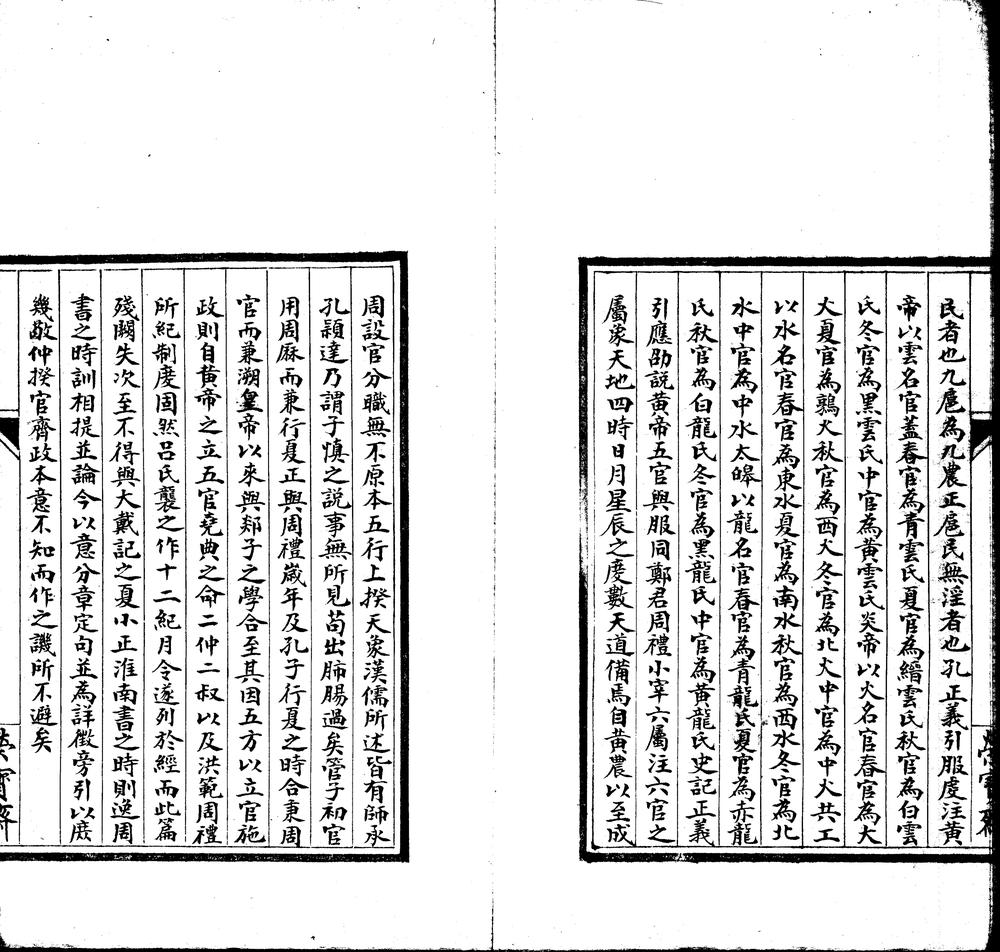 民者也九扈為九農正扈民無淫者也孔正義引服虔注黃
帝以雲名官蓋春官為青雲氏夏官為縉雲氏秋官為白雲
氏冬官為黑雲氏中官為黃雲氏炎帝以火名官春官為大
火夏官為鶉火秋官為西火冬官為北火中官為中火共工
以水名官春官為東水夏官為南水秋官為西水冬官為北
水中官為中水太皞以龍名官春官為青龍氏夏官為赤龍
氏秋官為白龍氏冬官為黑龍氏中官為黃龍氏史記正義
引應劭説黃帝五官與服同鄭君周禮小宰六屬注六官之
屬象天地四時日月星辰之度數天道備焉自黃農以至成
周設官分職無不原本五行上揆天象漢儒所述皆有師承
孔穎達乃謂子慎之説事無所見苟出肺腸過矣管子初官
用周厤而兼行夏正與周禮歲年及孔子行夏之時合秉周
官而兼溯皇帝以來與郯子之學合至其因五方以立官施
政則自黃帝之立五官堯典之命二仲二叔以及洪範周禮
所紀制度固然呂氏襲之作十二紀月令遂列於經而此篇
殘闕失次至不得與大戴記之夏小正淮南書之時則逸周
書之時訓相提並論今以意分章定句並為詳徵旁引以庶
幾敬仲揆官齊政本意不知而作之譏所不避矣
榮寶齋
榮寶齋